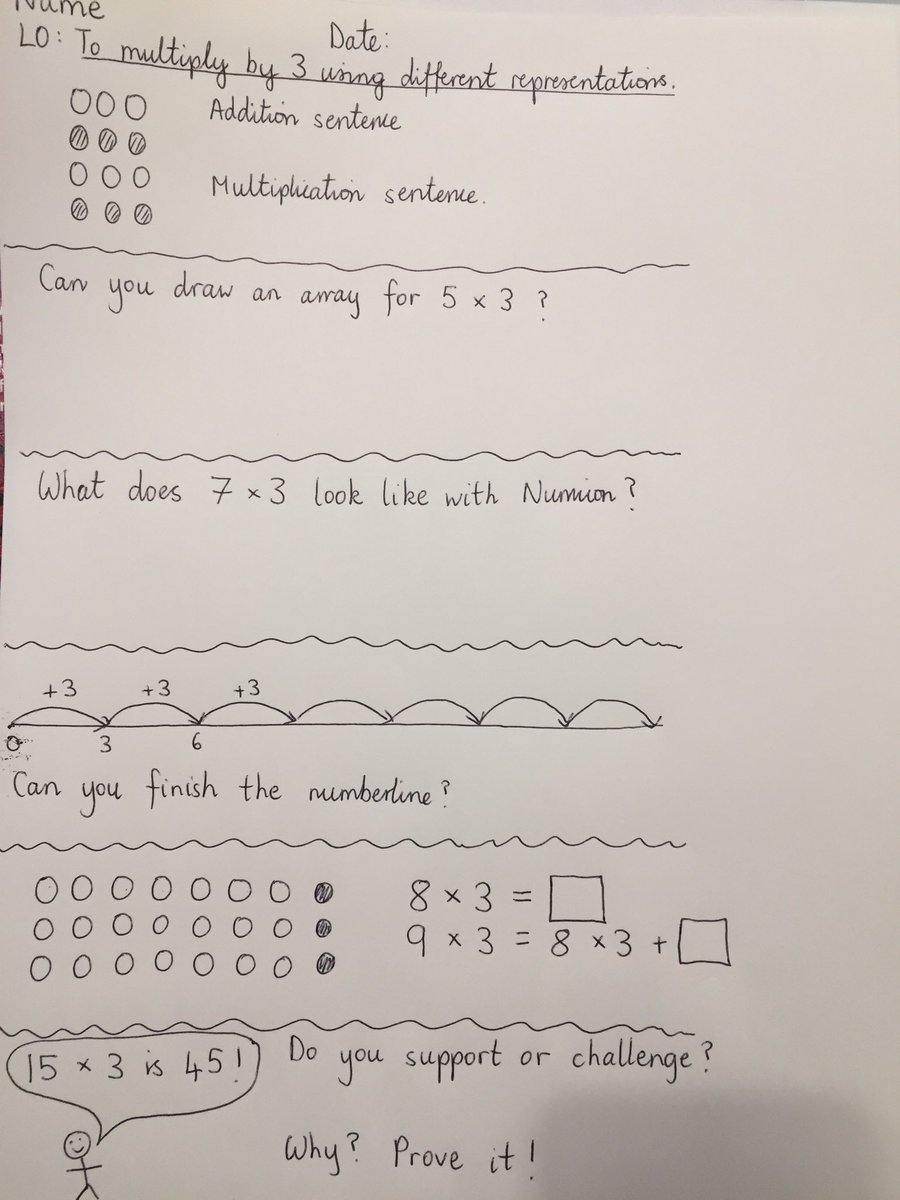 Name
Date:
LO: To multiply by 3 using different representations.
Addition sentence
Multiplication sentence.
Can you draw an array for 5 × 3 ?
What does 7 × 3 look like with Numicon?
+3 +3 +3
0 3 6
Can you finish the numberline?
8 × 3 =
9 × 3 = 8 × 3 +
15 × 3 is 45!
Do you support or challenge?
Why? Prove it!